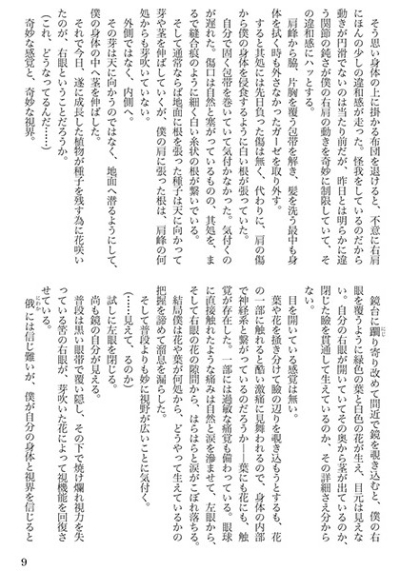 そう思い身体の上に掛かる布団を退けると、不意に右肩
にほんの少しの違和感が走った。怪我をしているのだから
動きが円滑でないのは当たり前だが、昨日とは明らかに違
う関節の軽さが僕の右肩の動きを奇妙に制限していて、そ
の違和感にハッとする。
肩峰から脇、片胸を覆う包帯を解き、髪を洗う最中も身
体を拭く時も外さなかったガーゼを取り外す。
すると其処には先日負った傷は無く、代わりに、肩の傷
から僕の身体を侵食するように白い根が張っていた。
自分で固く包帯を巻いていて気付かなかった。気付くの
が遅れた。傷口は自然と塞がっているものの、其処を、ま
るで縫合痕のように細く白い糸状の根が繋いでいる。
そして通常ならば地面に根を張った種子は天に向かって
芽や茎を伸ばしていくが、僕の肩に張った根は、肩峰の何
処からも芽吹いていない。
外側ではなく、内側へ。
その芽は天に向かうのではなく、地面へ潜るようにして、
僕の身体の中へ茎を伸ばした。
それで今日、遂に成長した植物が種子を残す為に花咲い
たのが、右眼ということだろうか。
(これ、どうなってるんだ……)
奇妙な感覚と、奇妙な視界。
鏡台に躙り寄り改めて間近で鏡を覗き込むと、僕の右
にじ
眼を覆うように緑色の葉と白色の花が生え、目元は見えな
い。自分の右眼が開いていてその奥から茎が出ているのか、
閉じた瞼を貫通して生えているのか、その詳細さえ分から
ない。
目を開いている感覚は無い。
葉や花を掻き分けて瞼の辺りを覗き込もうとするも、花
の一部に触れると酷い激痛に見舞われるので、身体の内部
で神経系と繋がっているのだろうか──葉にも花にも、触
覚が存在した。一部には過敏な痛覚も備わっている。眼球
に直接触れたような痛みは自然と涙を滲ませて、左眼から、
そして右眼の花の隙間から、はらはらと涙がこぼれ落ちる。
結局僕は花や葉が何処から、どうやって生えているかの
把握を諦めて溜息を漏らした。
そして普段よりも妙に視野が広いことに気付く。
(……見えて、るのか)
試しに左眼を閉じる。
尚も鏡の自分が見える。
普段は黒い眼帯で覆い隠し、その下で焼け爛れ視力を失
っている筈の右眼が、芽吹いた花によって視機能を回復さ
せている。
俄には信じ難いが、僕が自分の身体と視界を信じると
にわか
9